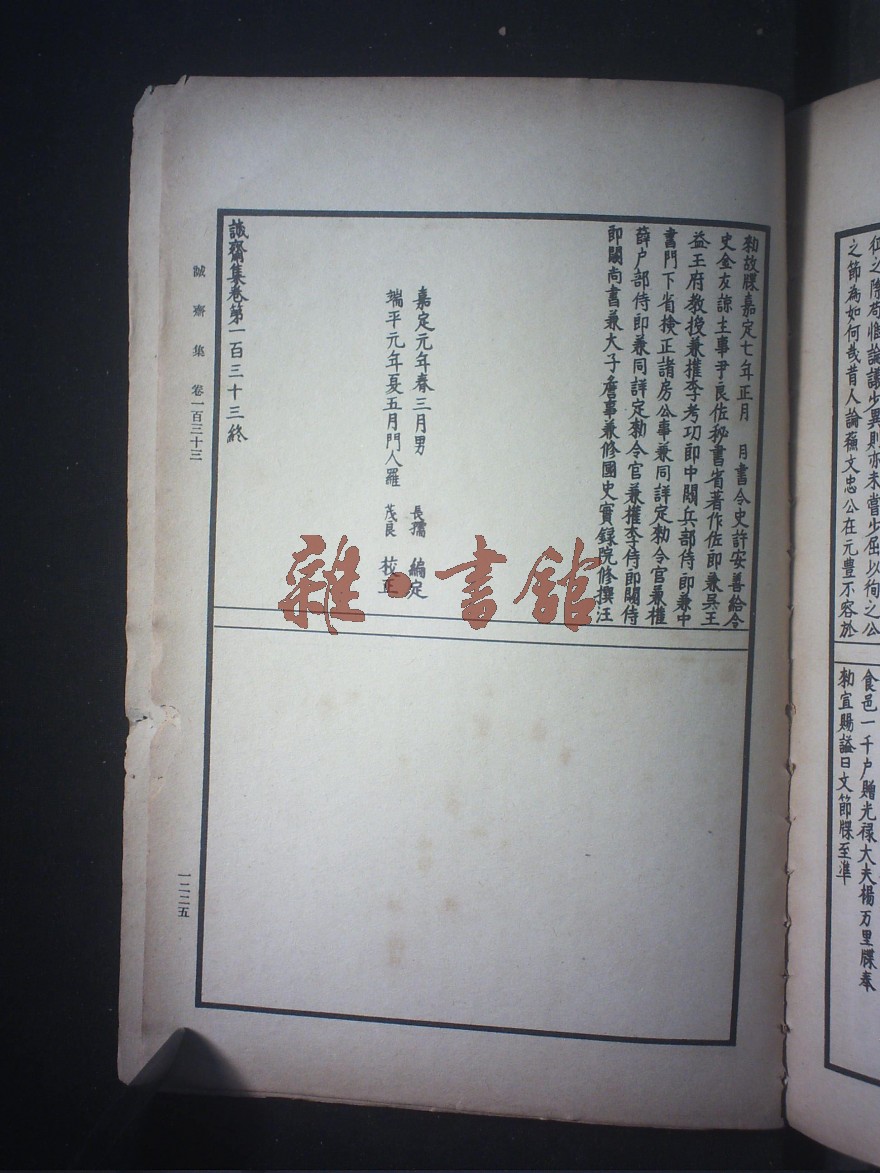 征之際苟惟論議少異則亦未嘗少屈以徇之公
之節為如何哉昔人論蘓文忠公在元豊不容於
食邑一千户贈光禄大夫楊万里牒奉
勑宜賜謚曰文節牒至準
勑故牒嘉定七年正月　月書令史許安善給令
史金友諒主事尹良佐秘書省著作佐郎兼吳王
益王府教授兼權李考功郎中闕兵部侍郎兼中
書門下省檢正諸房公事兼同詳定勑令官兼權
薛户部侍郎兼同詳定勑令官兼權李侍郎闕侍
郎闕尚書兼太子詹事兼修國史實録院修撰汪
嘉定元年春三月男　長孺　編定
端平元年夏五月門人羅　茂良　校正
誠齋集卷第一百三十三終
誠齋集　卷一百三十三
一二二五
雜·書館